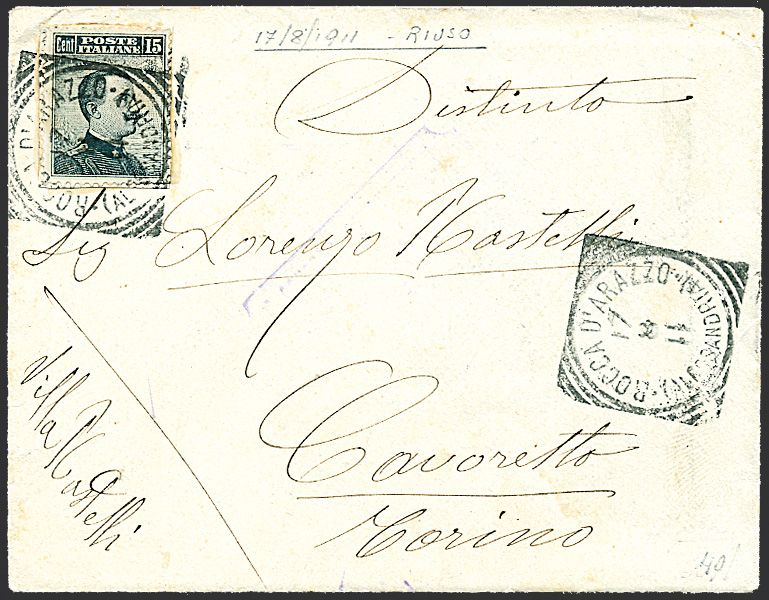 17/8/1911 - RIUSO
Cent POSTE ITALIANE 15
ROCCA D'ARAZZO
Distinto
Sig Lorenzo Rastelli
ROCCA D'ARAZZO (ALESSANDRIA)
17 8 11
Villa Rastelli
Cavoretto
Torino